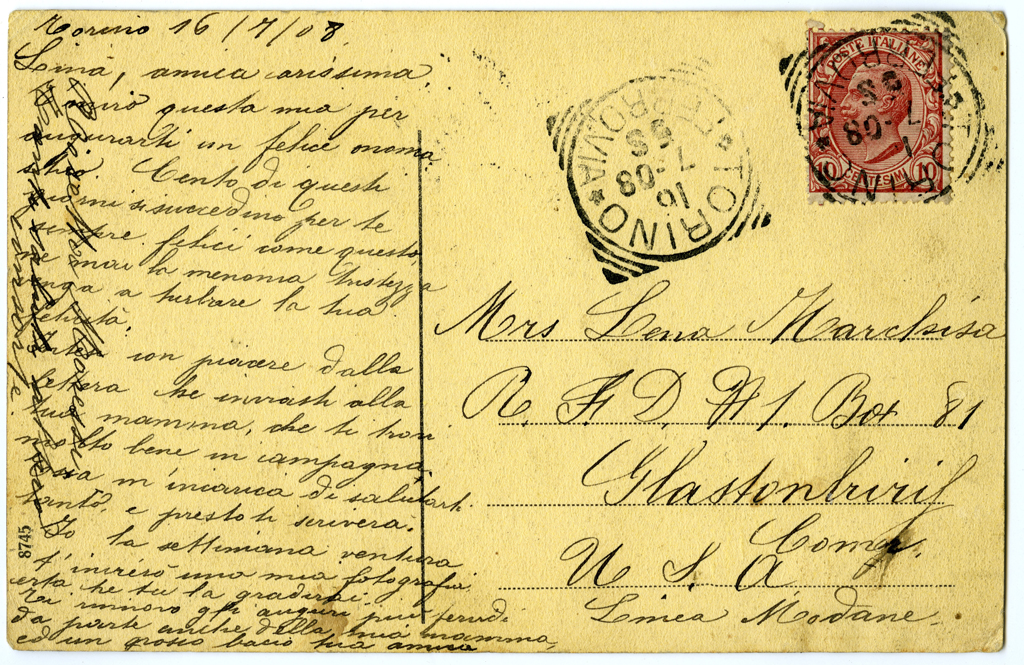 Torino 16/7/08
Lina, amica carissima,
Invio questa mia per
augurarti un felice onoma
stico. Cento di questi
giorni si succedino per te
sempre felici come questo
e mai la menoma tristezza
venga a turbare la tua
felicità.
con piacere dalla
lettera che inviasti alla
tua mamma, che ti trovi
molto bene in campagna.
Rosa m'incarica di salutarti
tanto, e presto ti scriverà.
Io la settimana ventura
t'invierò una mia fotografia
certa che tu la gradirai.
Ti rinnovo gli auguri più fervidi
da parte anche della mia mamma,
ed un grosso bacio tua amica
8745
POSTE ITALIANE
10 CENTESIMI 10
TORINO
FERROVIA
16
7-08
5 S
TORINO
FERROVIA
7-08
Mrs Lena Marchisa
R. F. D. # 1. Box 81
Glastonbriril
Conn.
U S A
Linea Modane.